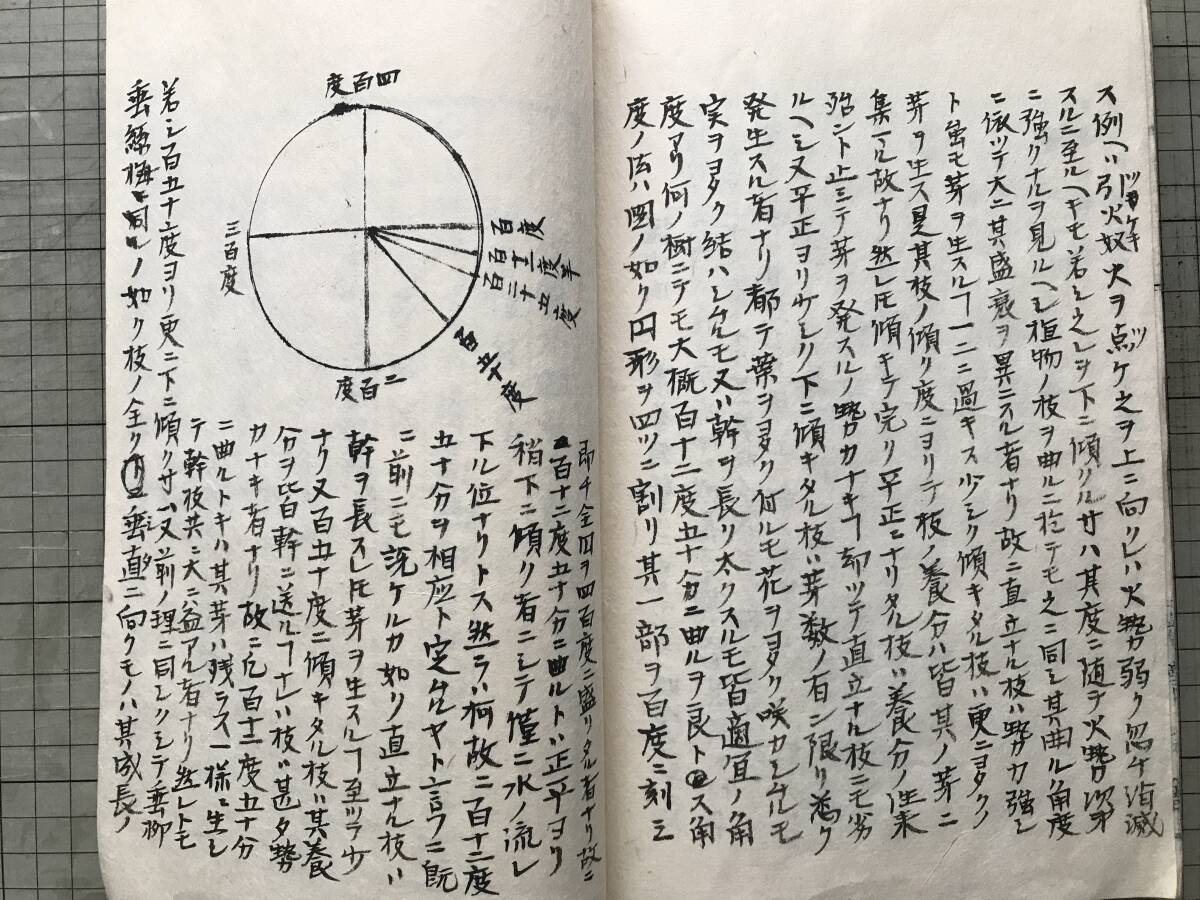 ス例ヘハ引火奴火ヲ点ケ之ヲ上ニ向クレハ火勢弱ク忽ケ消滅
ツケギ
ツ
スルニ至ルヘキモ若シ之レヲ下ニ傾クル寸ハ其度ニ随テ火勢次第
ニ強クナルヲ見ルヘシ植物ノ枝ヲ曲ルニ於テモ之ニ同シ其曲ル角度
ニ依ツテ大ニ其盛衰ヲ異ニスル者ナリ故ニ直立ナル枝ハ勢力強シ
ト虽モ芽ヲ生スルヿ一二ニ過キス少シク傾キタル枝ハ更ニヨタク
芽ヲ生ス是其枝ノ傾ク度ニヨリテ枝ノ養分ハ皆其ノ芽ニ
集マル故ナリ然レ𪜈傾キテ完ク平正ニナリタル枝ハ養分ノ往来
殆ント止ミテ芽ヲ発スルノ勢力ナキヿ却ツテ直立ナル枝ニモ劣
ルヘシ又平正ヨリ少シク下ニ傾キタル枝ハ芽数ノ有ン限リ為ク
発生スル者ナリ都テ葉ヲヨタク何ルモ花ヲヨタク咲カシムルモ
実ヲヨタク結ハシムルモ又ハ幹ヲ長ク太クスルモ皆適宜ノ角
度アリ何ノ樹ニテモ大概百十二度五十分ニ曲ルヲ良トス角
度ノ法ハ図ノ如ク円形ヲ四ツニ割リ其一部ヲ百度ニ刻ミ
四百度
百度
百十二度半
百二十五度
百五十度
二百度
三百度
即チ全円ヲ四百度ニ盛リタル者ナリ故ニ
百十二度五十分ニ曲ルトハ正平ヨリ
稍下ニ傾ク者ニシテ僅ニ水ノ流レ
下ル位ナリトス然ラハ何故ニ百十二度
五十分ヲ相応ト定ムルヤト言フニ既
ニ前ニモ説ケルカ如ク直立ナル枝ハ
幹ヲ長スレ𪜈芽ヲ生スルヿ至ツテ少
ナク又百五十度ニ傾キタル枝ハ其養
分ヲ皆幹ニ送ルヿナレハ枝ハ甚タ勢
力ナキ者ナリ故ニ凡百十二度五十分
ニ曲ルトキハ其芽ハ残ラス一様ニ生シ
テ幹枝共ニ大ニ益アル者ナリ然レトモ
若シ百五十度ヨリ更ニ下ニ傾ク寸ハ又前ノ理ニ同シクシテ垂柳
垂絲梅ノ如ク枝ノ全ク垂直ニ向クモノハ其成長ノ